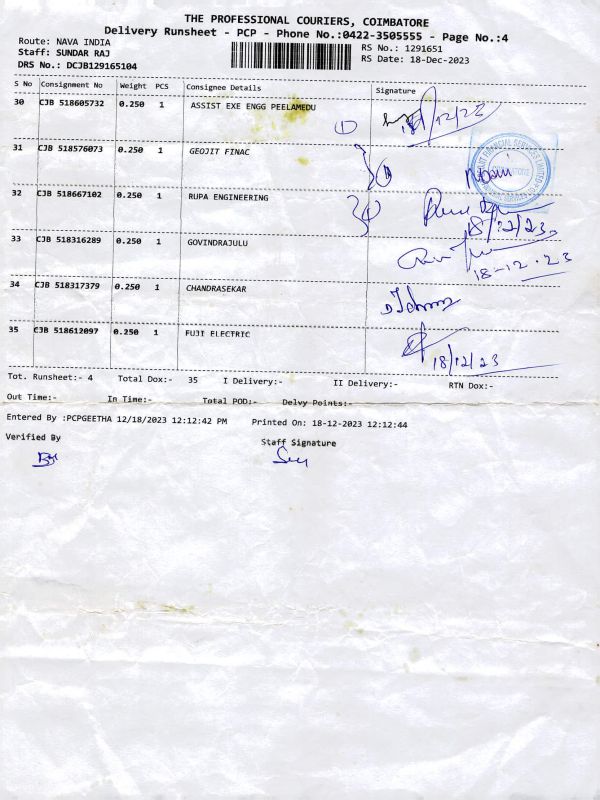 THE PROFESSIONAL COURIERS, COIMBATORE
Delivery Runsheet - PCP - Phone No.:0422-3505555 - Page No.:4
Route: NAVA INDIA
Staff: SUNDAR RAJ
DRS No.: DCJB129165104
RS No.: 1291651
RS Date: 18-Dec-2023
S No Consignment No Weight PCS Consignee Details Signature
30 CJB 518605732 0.250 1 ASSIST EXE ENGG PEELAMEDU 18/12/23
1
31 CJB 518576073 0.250 1 GEOJIT FINAC
32 CJB 518667102 0.250 1 RUPA ENGINEERING
18/12/23
33 CJB 518316289 0.250 1 GOVINDRAJULU
18-12-23
34 CJB 518317379 0.250 1 CHANDRASEKAR
35 CJB 518612097 0.250 1 FUJI ELECTRIC
18/12/23
Tot. Runsheet:- 4 Total Dox:- 35 I Delivery:- II Delivery:- RTN Dox:-
Out Time:- In Time:- Total POD:- Delvy Points:-
Entered By :PCPGEETHA 12/18/2023 12:12:42 PM Printed On: 18-12-2023 12:12:44
Verified By Staff Signature